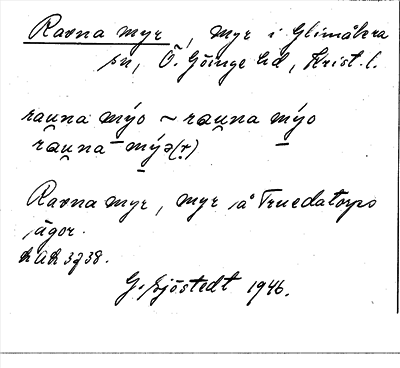 Ravna myr, myr i Glimåkra
sn, Ö. Göinge hd, Krist. l.
rau̯na mýo ~ rau̯na mýo
rau̯na - mýə(r)
Ravna myr, myr å Truedstorps
ägor.
RAK 3738.
G. Sjöstedt 1946.